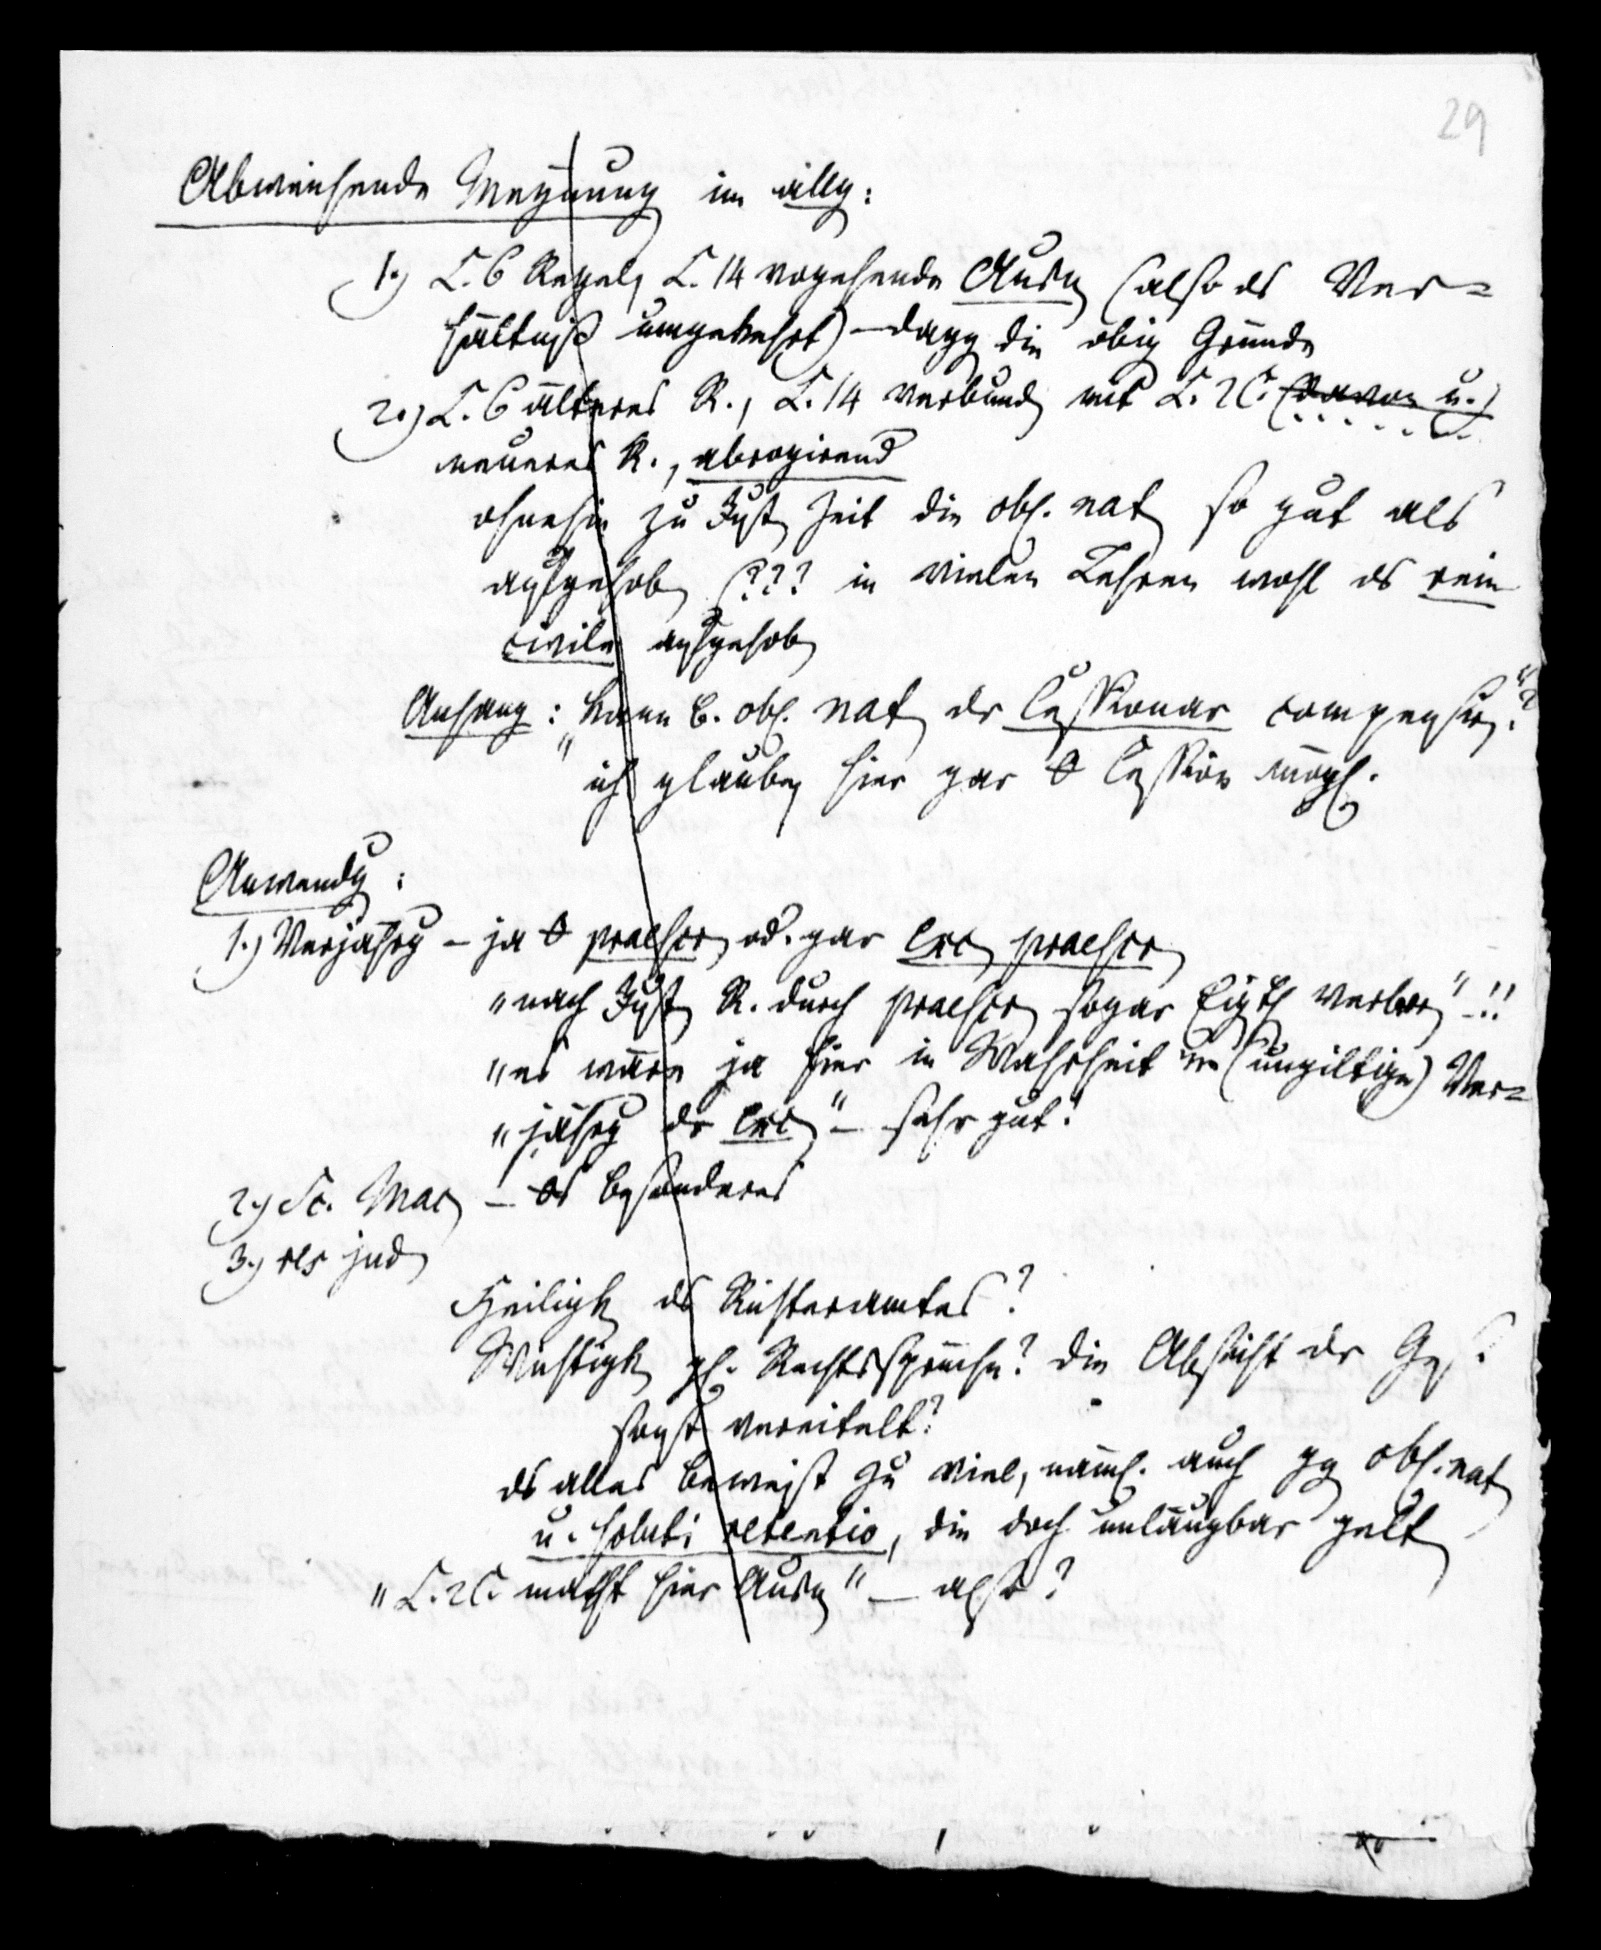 29
Abweichende Meynung im allg:
1.) L. 6 Regel, L. 14 vorgehende Ausn (also ds Ver=
hältniß umgekehrt) – dagg die obig Gründe
2.) L. 6 älteres R., L. 14 verbund mit L. 2 C. (davon u.)
neueres R., abrogirend
ohnehin zu Just Zeit die obl. nat so gut als
aufgehob (??? in vielen Lehren wohl ds rein
civile aufgehob
Anhang: "kann b. obl. nat dr Cessionar compensir"?
ich glaube hier gar 0 Cession mögl.
Anwendg:
1.) Verjährg – ja 0 praescr od. gar exc praescr
"nach Just R. durch praescr sogar Eigth verlor" –!!
"es wäre ja hier in Wahrheit (ungiltige) Ver=
"jährg dr exc" – sehr gut!
2.) Sc. Mac – 0s besonderes
3.) res jud
Heiligk ds Richteramtes?
Wichtigk gl. Rechtssprüche? die Absicht dr Ges.
sonst vereitelt?
ds alles beweist zu viel, näml. auch gg obl. nat
u. soluti retentio, die doch unläugbar gelt
"L. 2 C. macht hier Ausn" – also?